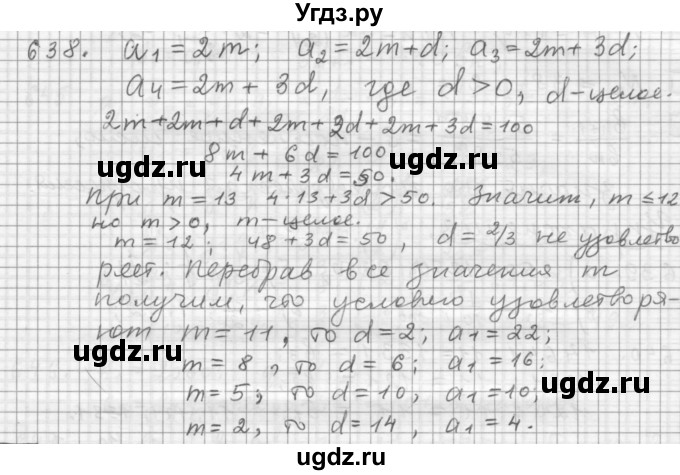 Угдз.ру
638. a₁ = 2m; a₂ = 2m+d; a₃ = 2m+3d;
a₄ = 2m + 3d, где d > 0, d - целое.
2m+2m+d+2m+2d+2m+3d=100
8m + 6d = 100
4m + 3d = 50.
При m = 13 4·13+3d > 50. Значит, m ≤ 12
но m > 0, m - целое.
m = 12; 48 + 3d = 50, d = 2/3 не удовлетво
ряет. Перебрав все значения m
получим, что условию удовлетворя-
ют m = 11, то d = 2; a₁ = 22;
m = 8, то d = 6; a₁ = 16;
m = 5; то d = 10, a₁ = 10;
m = 2, то d = 14, a₁ = 4.
ugdz.ru
ugdz.ru
ugdz.ru
ugdz.ru
ugdz.ru
ugdz.ru
ugdz.ru